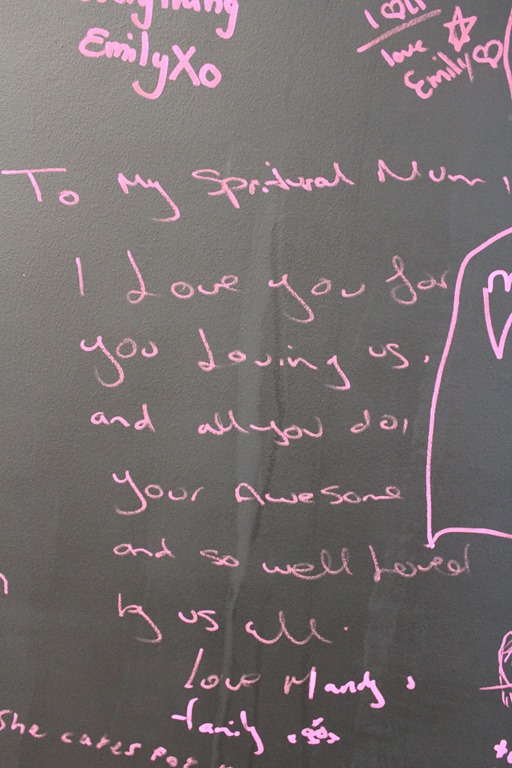 EmilyXo
love
Emily
To My Spritural Mum,
I Love you for
you Loving us.
and all you do!
your Awesome
and so well Loved
by us all.
love Mandy &
family
She cares for